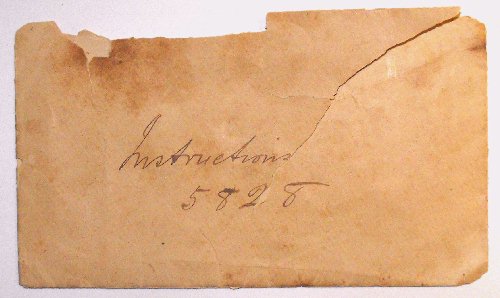 Instructions
5828